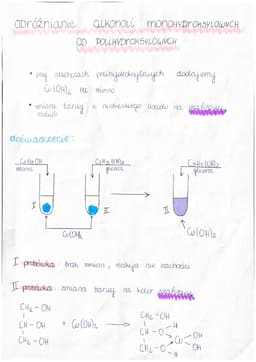 ODRÓŻNIANIE ALKOHOLI MONOHYDROKSYLOWYCH
OD POLIHYDROKSYLOWYCH
• przy alkoholach polihydroksylowych dodajemy
Cu(OH)₂ na zimno
• zmiana barwy z niebieskiego osadu na szafirowy
roztwór
doświadczenie:
C₂H₅OH
etanol
C₃H₅(OH)₃
glicerol
C₃H₅(OH)₃
glicerol
I
II
II
Cu(OH)₂
Cu(OH)₂
I probówka: brak zmian, reakcja nie zachodzi
II probówka: zmiana barwy na kolor szafirowy
CH₂ - OH
CH - OH + Cu(OH)₂ →
CH₂ - OH
CH₂ - OH
CH - O - H
Cu
OH
OH
CH₂ - O - H